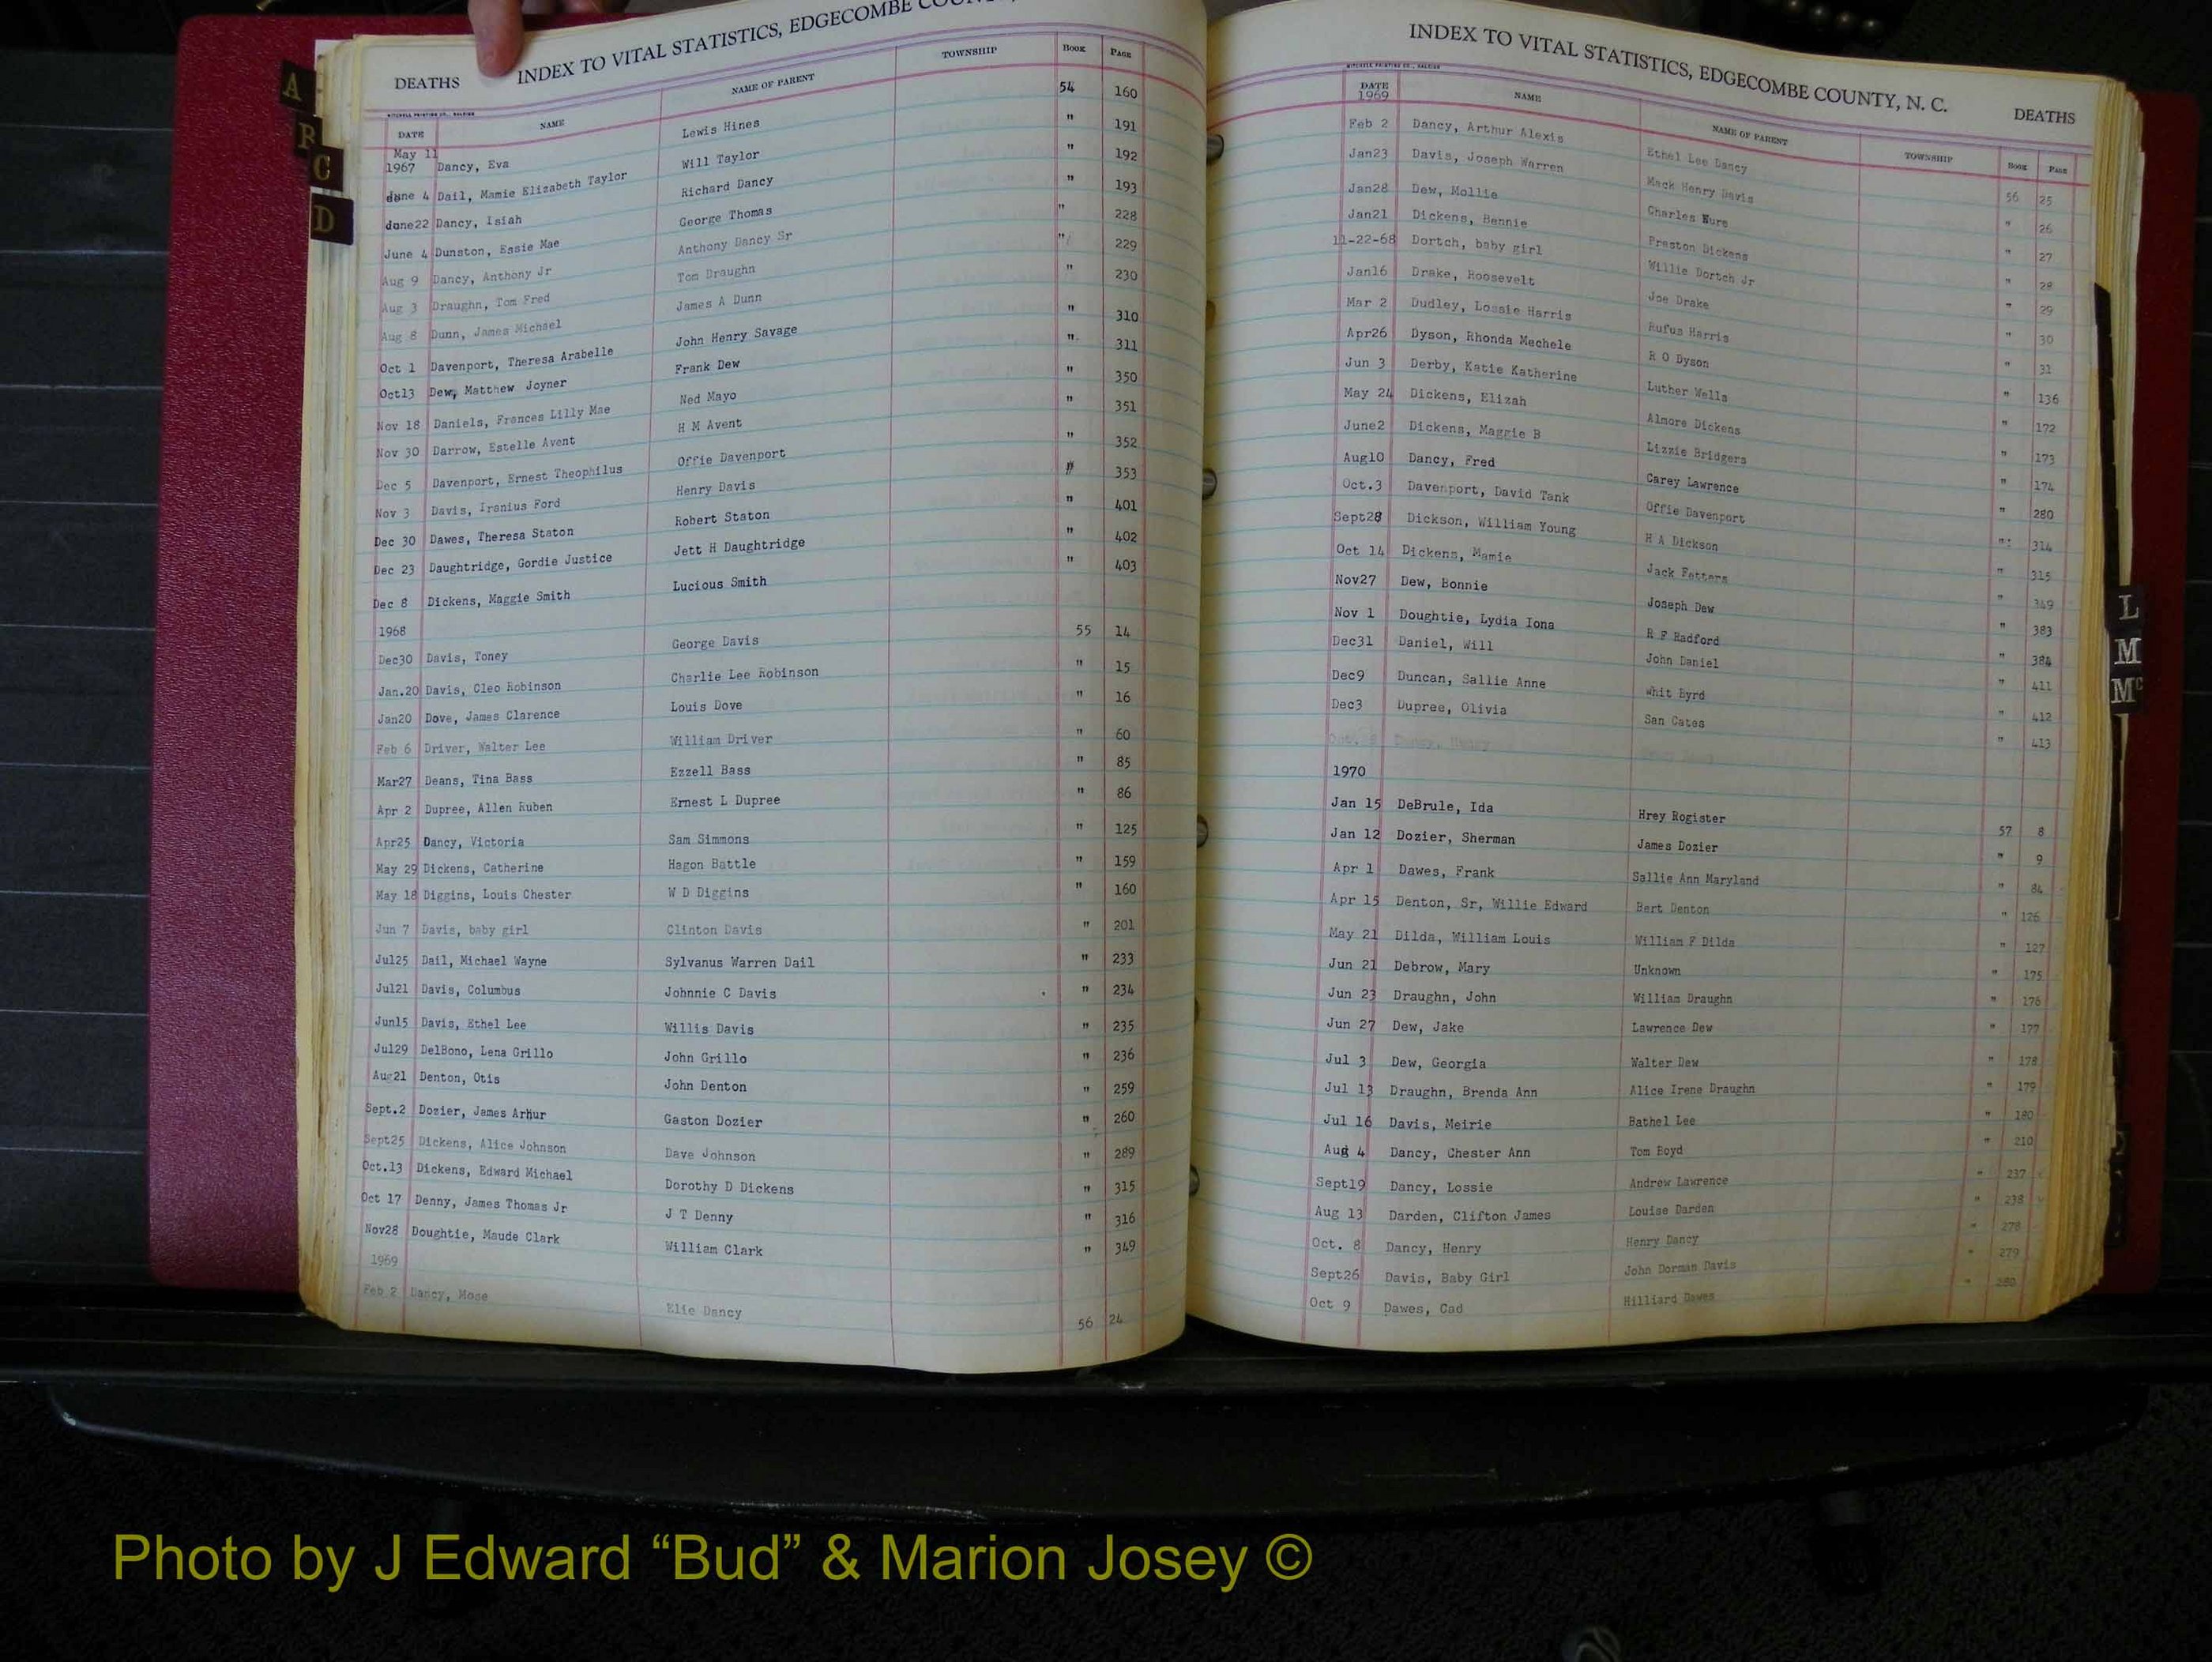 DEATHS INDEX TO VITAL STATISTICS, EDGECOMBE
MITCHELL PRINTING CO., RALEIGH
DATE NAME NAME OF PARENT TOWNSHIP BOOK PAGE
May 11
1967 Dancy, Eva Lewis Hines 54 160
June 4 Dail, Mamie Elizabeth Taylor Will Taylor " 191
June22 Dancy, Isiah Richard Dancy " 192
June 4 Dunston, Essie Mae George Thomas " 193
Aug 9 Dancy, Anthony Jr Anthony Dancy Sr " 228
Aug 3 Draughn, Tom Fred Tom Draughn " 229
Aug 8 Dunn, James Michael James A Dunn " 230
Oct 1 Davenport, Theresa Arabelle John Henry Savage " 310
Oct13 Dew, Matthew Joyner Frank Dew " 311
Nov 18 Daniels, Frances Lilly Mae Ned Mayo " 350
Nov 30 Darrow, Estelle Avent H M Avent " 351
Dec 5 Davenport, Ernest Theophilus Offie Davenport " 352
Nov 3 Davis, Iranius Ford Henry Davis " 353
Dec 30 Dawes, Theresa Staton Robert Staton " 401
Dec 23 Daughtridge, Gordie Justice Jett H Daughtridge " 402
Dec 8 Dickens, Maggie Smith Lucious Smith " 403
1968
Dec30 Davis, Toney George Davis 55 14
Jan.20 Davis, Cleo Robinson Charlie Lee Robinson " 15
Jan20 Dove, James Clarence Louis Dove " 16
Feb 6 Driver, Walter Lee William Driver " 60
Mar27 Deans, Tina Bass Ezzell Bass " 85
Apr 2 Dupree, Allen Ruben Ernest L Dupree " 86
Apr25 Dancy, Victoria Sam Simmons " 125
May 29 Dickens, Catherine Hagon Battle " 159
May 18 Diggins, Louis Chester W D Diggins " 160
Jun 7 Davis, baby girl Clinton Davis " 201
Jul25 Dail, Michael Wayne Sylvanus Warren Dail " 233
Jul21 Davis, Columbus Johnnie C Davis " 234
Jun15 Davis, Ethel Lee Willis Davis " 235
Jul29 DelBono, Lena Grillo John Grillo " 236
Aug21 Denton, Otis John Denton " 259
Sept.2 Dozier, James Arhur Gaston Dozier " 260
Sept25 Dickens, Alice Johnson Dave Johnson " 289
Oct.13 Dickens, Edward Michael Dorothy D Dickens " 315
Oct 17 Denny, James Thomas Jr J T Denny " 316
Nov28 Doughtie, Maude Clark William Clark " 349
1969
Feb 2 Dancy, Mose Elie Dancy 56 24
INDEX TO VITAL STATISTICS, EDGECOMBE COUNTY, N. C. DEATHS
MITCHELL PRINTING CO., RALEIGH
DATE NAME NAME OF PARENT TOWNSHIP BOOK PAGE
1969
Feb 2 Dancy, Arthur Alexis Ethel Lee Dancy 56 25
Jan23 Davis, Joseph Warren Mack Henry Davis " 26
Jan28 Dew, Mollie Charles " 27
Jan21 Dickens, Bennie Preston Dickens " 28
11-22-68 Dortch, baby girl Willie Dortch Jr " 29
Jan16 Drake, Roosevelt Joe Drake " 30
Mar 2 Dudley, Lossie Harris Rufus Harris " 31
Apr26 Dyson, Rhonda Mechele R O Dyson " 136
Jun 3 Derby, Katie Katherine Luther Wells " 172
May 24 Dickens, Elizah Almore Dickens " 173
June2 Dickens, Maggie B Lizzie Bridgers " 174
Aug10 Dancy, Fred Carey Lawrence " 280
Oct.3 Davenport, David Tank Offie Davenport " 314
Sept28 Dickson, William Young H A Dickson " 315
Oct 14 Dickens, Mamie Jack Fetters " 349
Nov27 Dew, Bonnie Joseph Dew " 383
Nov 1 Doughtie, Lydia Iona R F Radford " 384
Dec31 Daniel, Will John Daniel " 411
Dec9 Duncan, Sallie Anne Whit Byrd " 412
Dec3 Dupree, Olivia San Cates " 413
1970
Jan 15 DeBrule, Ida Hrey Rogister 57 8
Jan 12 Dozier, Sherman James Dozier " 9
Apr 1 Dawes, Frank Sallie Ann Maryland " 84
Apr 15 Denton, Sr, Willie Edward Bert Denton " 126
May 21 Dilda, William Louis William F Dilda " 127
Jun 21 Debrow, Mary Unknown " 175
Jun 23 Draughn, John William Draughn " 176
Jun 27 Dew, Jake Lawrence Dew " 177
Jul 3 Dew, Georgia Walter Dew " 178
Jul 13 Draughn, Brenda Ann Alice Irene Draughn " 179
Jul 16 Davis, Meirie Bathel Lee " 180
Aug 4 Dancy, Chester Ann Tom Boyd " 210
Sept19 Dancy, Lossie Andrew Lawrence " 237
Aug 13 Darden, Clifton James Louise Darden " 238
Oct. 8 Dancy, Henry Henry Dancy " 278
Sept26 Davis, Baby Girl John Dorman Davis " 279
Oct 9 Dawes, Cad Hilliard Dawes " 280
A
B
C
D
L
M
Mc
Photo by J Edward “Bud” & Marion Josey ©